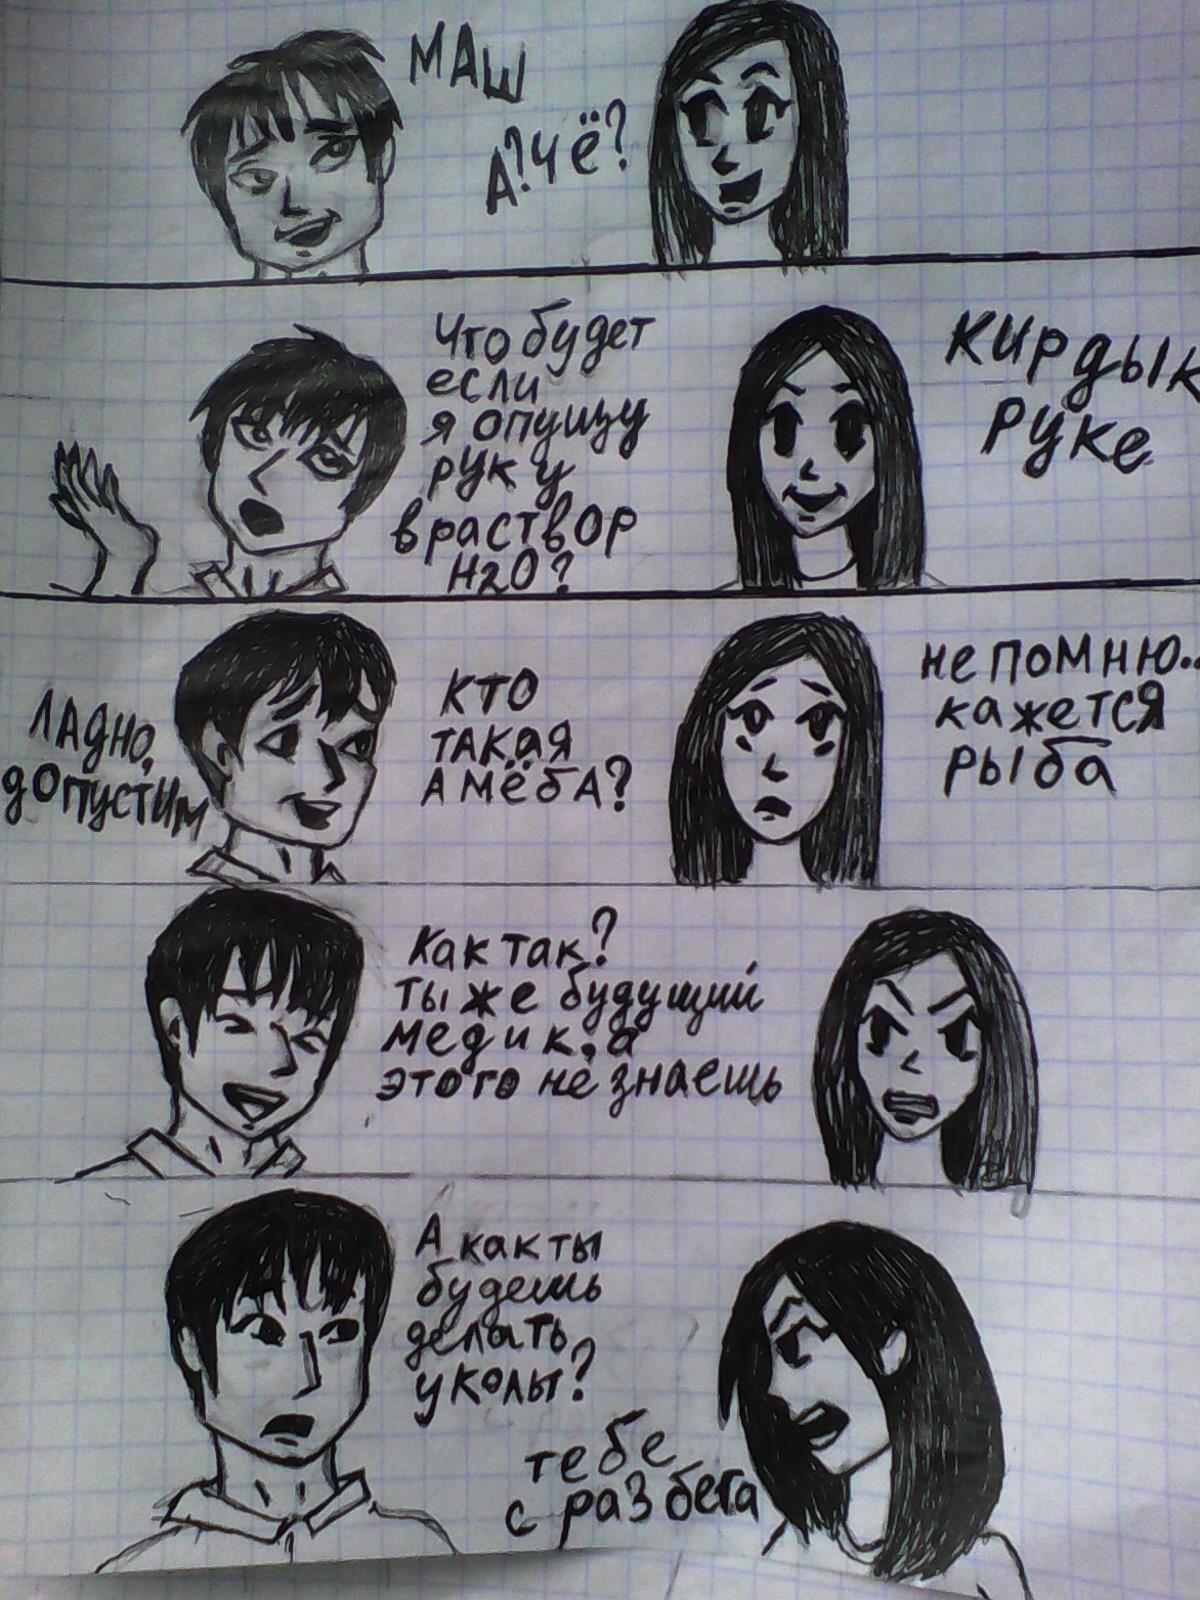 МАШ
А? ЧЁ?
Что будет
если
я опущу
руку
в раствор
H2O?
КИРДЫК
РУКЕ
ЛАДНО,
допустим
КТО
ТАКАЯ
АМЁБА?
не помню..
кажется
рыба
Как так?
ты же будущий
медик, а
этого не знаешь
А как ты
будешь
делать
уколы?
тебе
с разбега